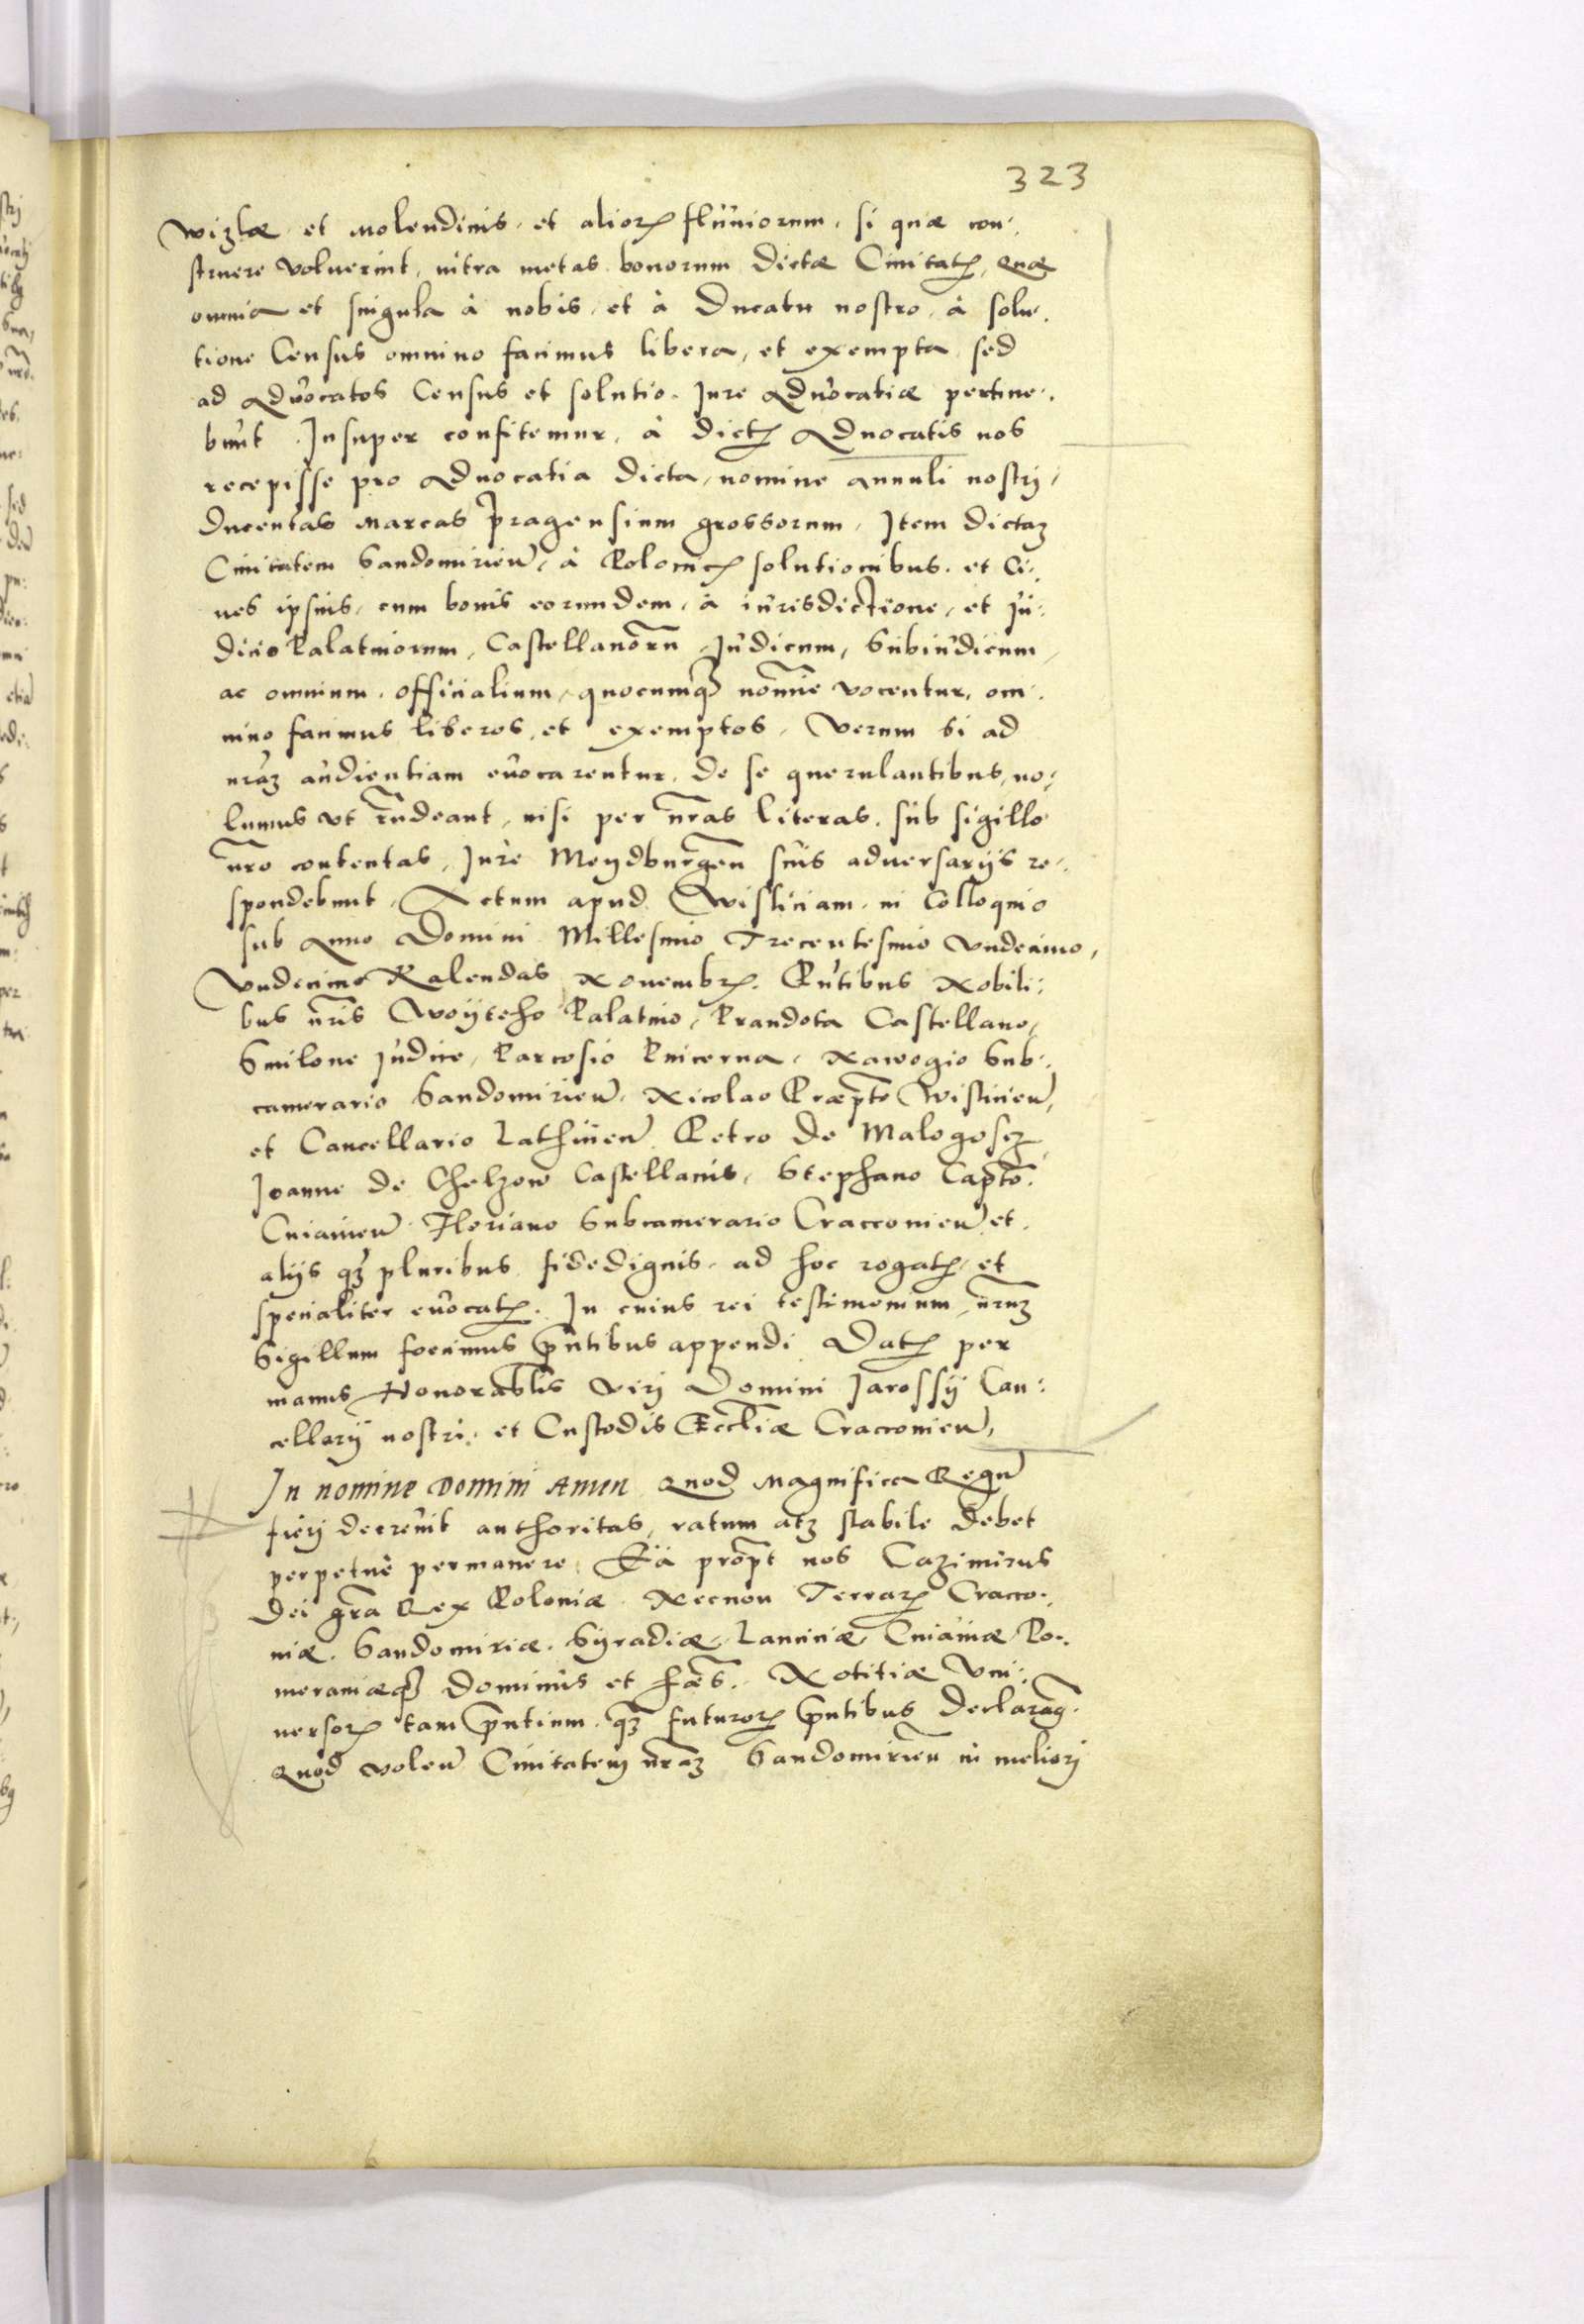 323
Wizlæ et Molendinis et alioꝝ fluuiorum, si quæ con:
struere voluerint, intra metas bonorum dictæ Ciuitatꝭ, Quæ
omnia et singula à nobis, et à Ducatu nostro, à solu:
tione Census omnino facimus libera, et exempta sed
ad Aduocatos Census et solutio. Jure Aduocatiæ pertine:
bunt. Insuper confitemur, à dictꝭ Aduocatis nos
recepisse pro Aduocatia dicta, nomine annuli nostrj,
Ducentas Marcas Pragensium grossorum, Item dictaꝫ
Ciuitatem Sandomirieñ, à Polonicꝭ solutionibus, et Ci:
ues ipsius, cum bonis eorundem, à iurisdictione, et Ju:
dicio Palatinorum, Castellanorũ Judicum, Subiudicum,
ac omnium officialium, quocumqꝫ nomine vocentur, om:
nino facimus liberos, et exemptos, Verum si ad
nrãꝫ audientiam euocarentur, de se querulantibus, no:
lumus vt rñdeant, nisi per nrãs literas, sub sigillo
nrõ contentas, Jure Meydburgeñ suis aduersarijs re:
spondebunt, Actum apud Wisliciam in Colloquio
sub Anno Domini Millesimo Trecentesimo Vndecimo,
Vndecimo Kalendas Nouembrꝭ. Pñtibus Nobili:
bus nrĩs Woyteho Palatino, Prandota Castellano,
Smilone Judice, Parcosio Pincerna, Nawogio Sub:
camerario Sandomirieñ, Nicolao Præpto Wislicieñ,
et Cancellario Lathineñ Petro de Malogoscz,
Joanne de Chelzow Castellanis, Stephano Capto.
Cuiauieñ Floriano Subcamerario Cracconieñ et
alijs qꝫ pluribus fidedignis, ad hoc rogatꝭ, et
specialiter euocatꝭ. In cuius rei testimonium nrũꝫ
Sigillum fecimus pñtibus appendi Datꝭ per
manus Honorabilis Virj Domini Jarossij Can:
cellarij nostri, et Custodis Eccliæ Cracconieñ,
In nomine Domini Amen Quod Magnifica Regũ
fierj decreuit authoritas, ratum atqꝫ stabile debet
perpetuè permanere, Eà propt nos Cazimirus
Dei grã Rex Poloniæ Necnon Terraꝝ Cracco:
niæ, Sandomiriæ, Syradiæ, Lanciciæ, Cuiauiæ Po:
meraniæqꝫ Dominus et hæs. Notitiæ Vni:
uersoꝝ tam pñtium, qꝫ futuroꝝ pñtibus declaramꝰ
Quod voleñ Ciuitatem nrãꝫ Sandomirieñ in meliorj